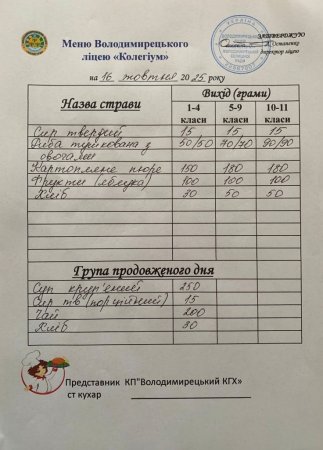 Меню Володимирецького
ліцею «Колегіум»
ЗАТВЕРДЖУЮ
директор ліцею
на 16 жовтня 2025 року
Назва страви Вихід (грами)
1-4 класи 5-9 класи 10-11 класи
Сир твердий 15 15 15
Риба тушкована з 50/50 70/70 90/90
овочами
Картопляне пюре 150 180 180
Фрукти (яблука) 100 100 100
Хліб 30 50 50
Група продовженого дня
Суп круп'яний 250
Сир тв (порційний) 15
Чай 200
Хліб 30
Представник КП"Володимирецький КГХ»
ст кухар